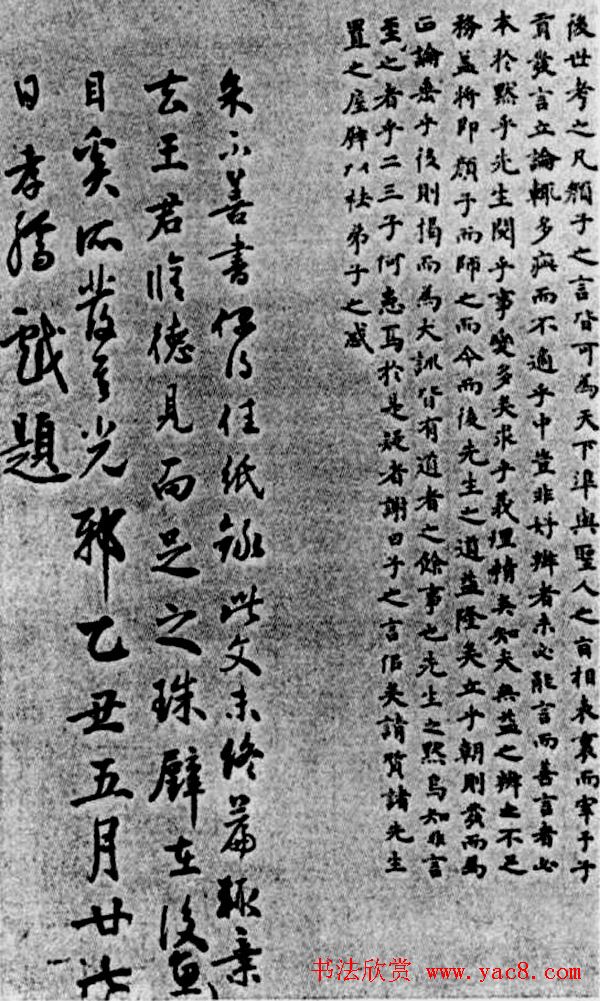 後世考之凡顏子之言皆可為天下準與聖人之言相表裏而宰予子
貢發言立論輒多疵而不適乎中豈非好辯者未必能言而善言者必
本於默乎先生閱乎事變多矣求乎義理精矣知夫無益之辨之不足
務益將即顏子而師之而今而後先生之道益隆矣立乎朝則發而為
正論垂乎後則揭而為大訓皆有道者之餘事也先生之默烏知非言
至之者乎二三子何惑焉於是疑者謝曰子之言信矣請質諸先生
置之座壁以祛弟子之惑
朱不善書佳紙錄此文未終篇輒棄
去王君惟德見而足之珠璧在後魚
目奚所發其光邪乙丑五月廿六
日孝孺戲題
书法欣赏 www.yac8.com